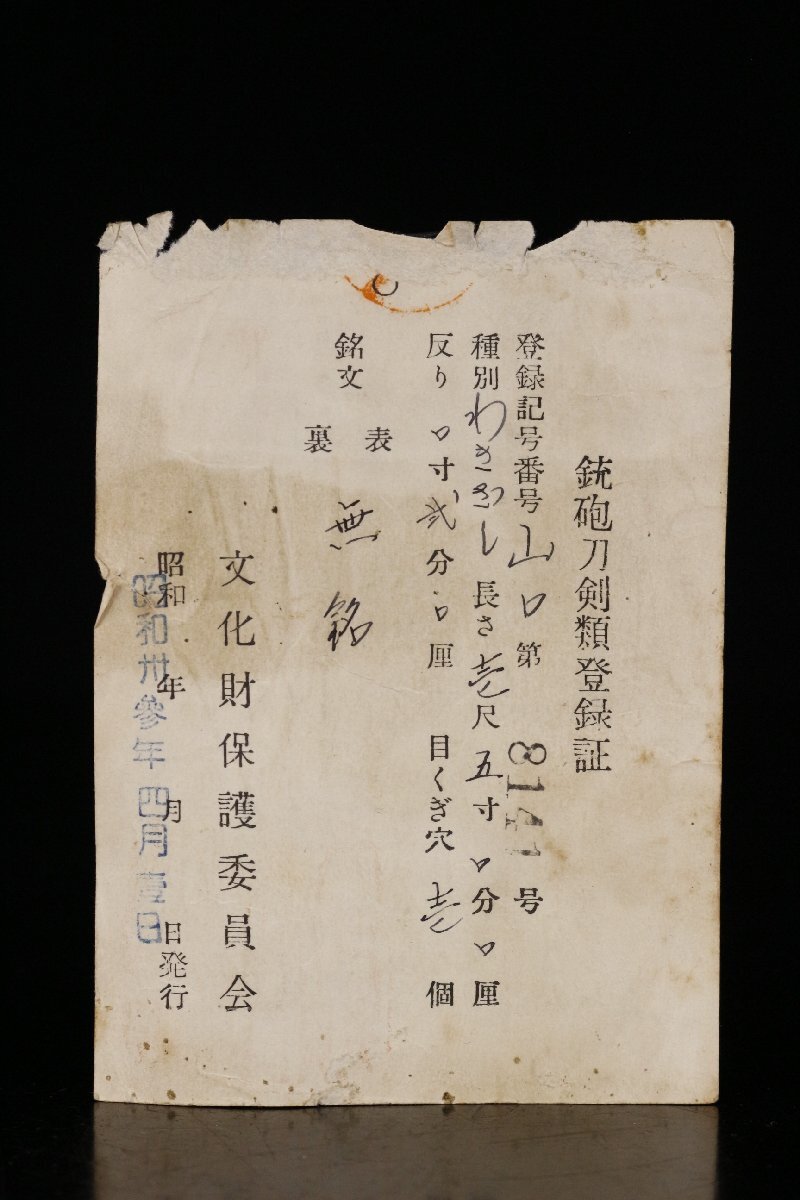 銃砲刀剣類登録証
登録記号番号 山口 第 8141 号
種別 わきざし 長さ 壱尺五寸口分口厘
反り 口寸弐分口厘 目くぎ穴 壱 個
銘文
表
裏
無銘
文化財保護委員会
昭和 年 月 日発行
昭和卅参年四月壹日